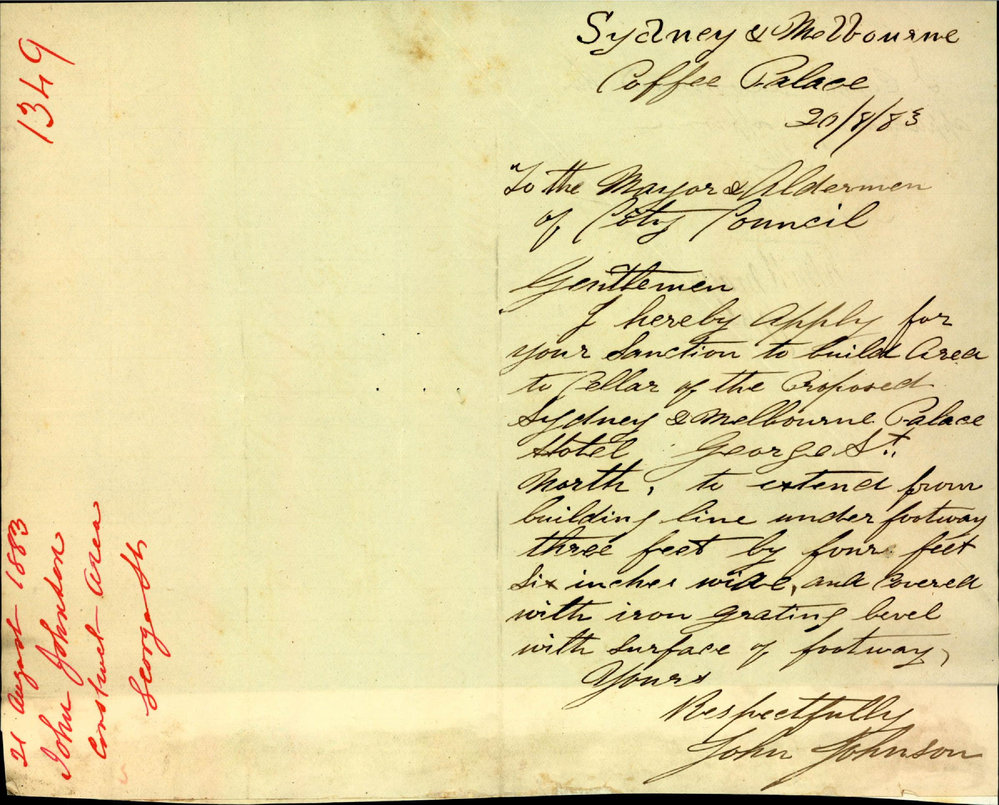 Sydney & Melbourne
Coffee Palace
20/8/83
To the Mayor & Aldermen
of City Council
Gentlemen
I hereby Apply for
your Sanction to build Area
to Cellar of the Proposed
Sydney & Melbourne Palace
Hotel George St.
North, to extend from
building line under footway
three feet by four feet
six inches wide, and Covered
with iron grating level
with surface of footway,
Yours
Respectfully
John Johnson
1349
21 August 1883
John Johnson
Construct Area
George St